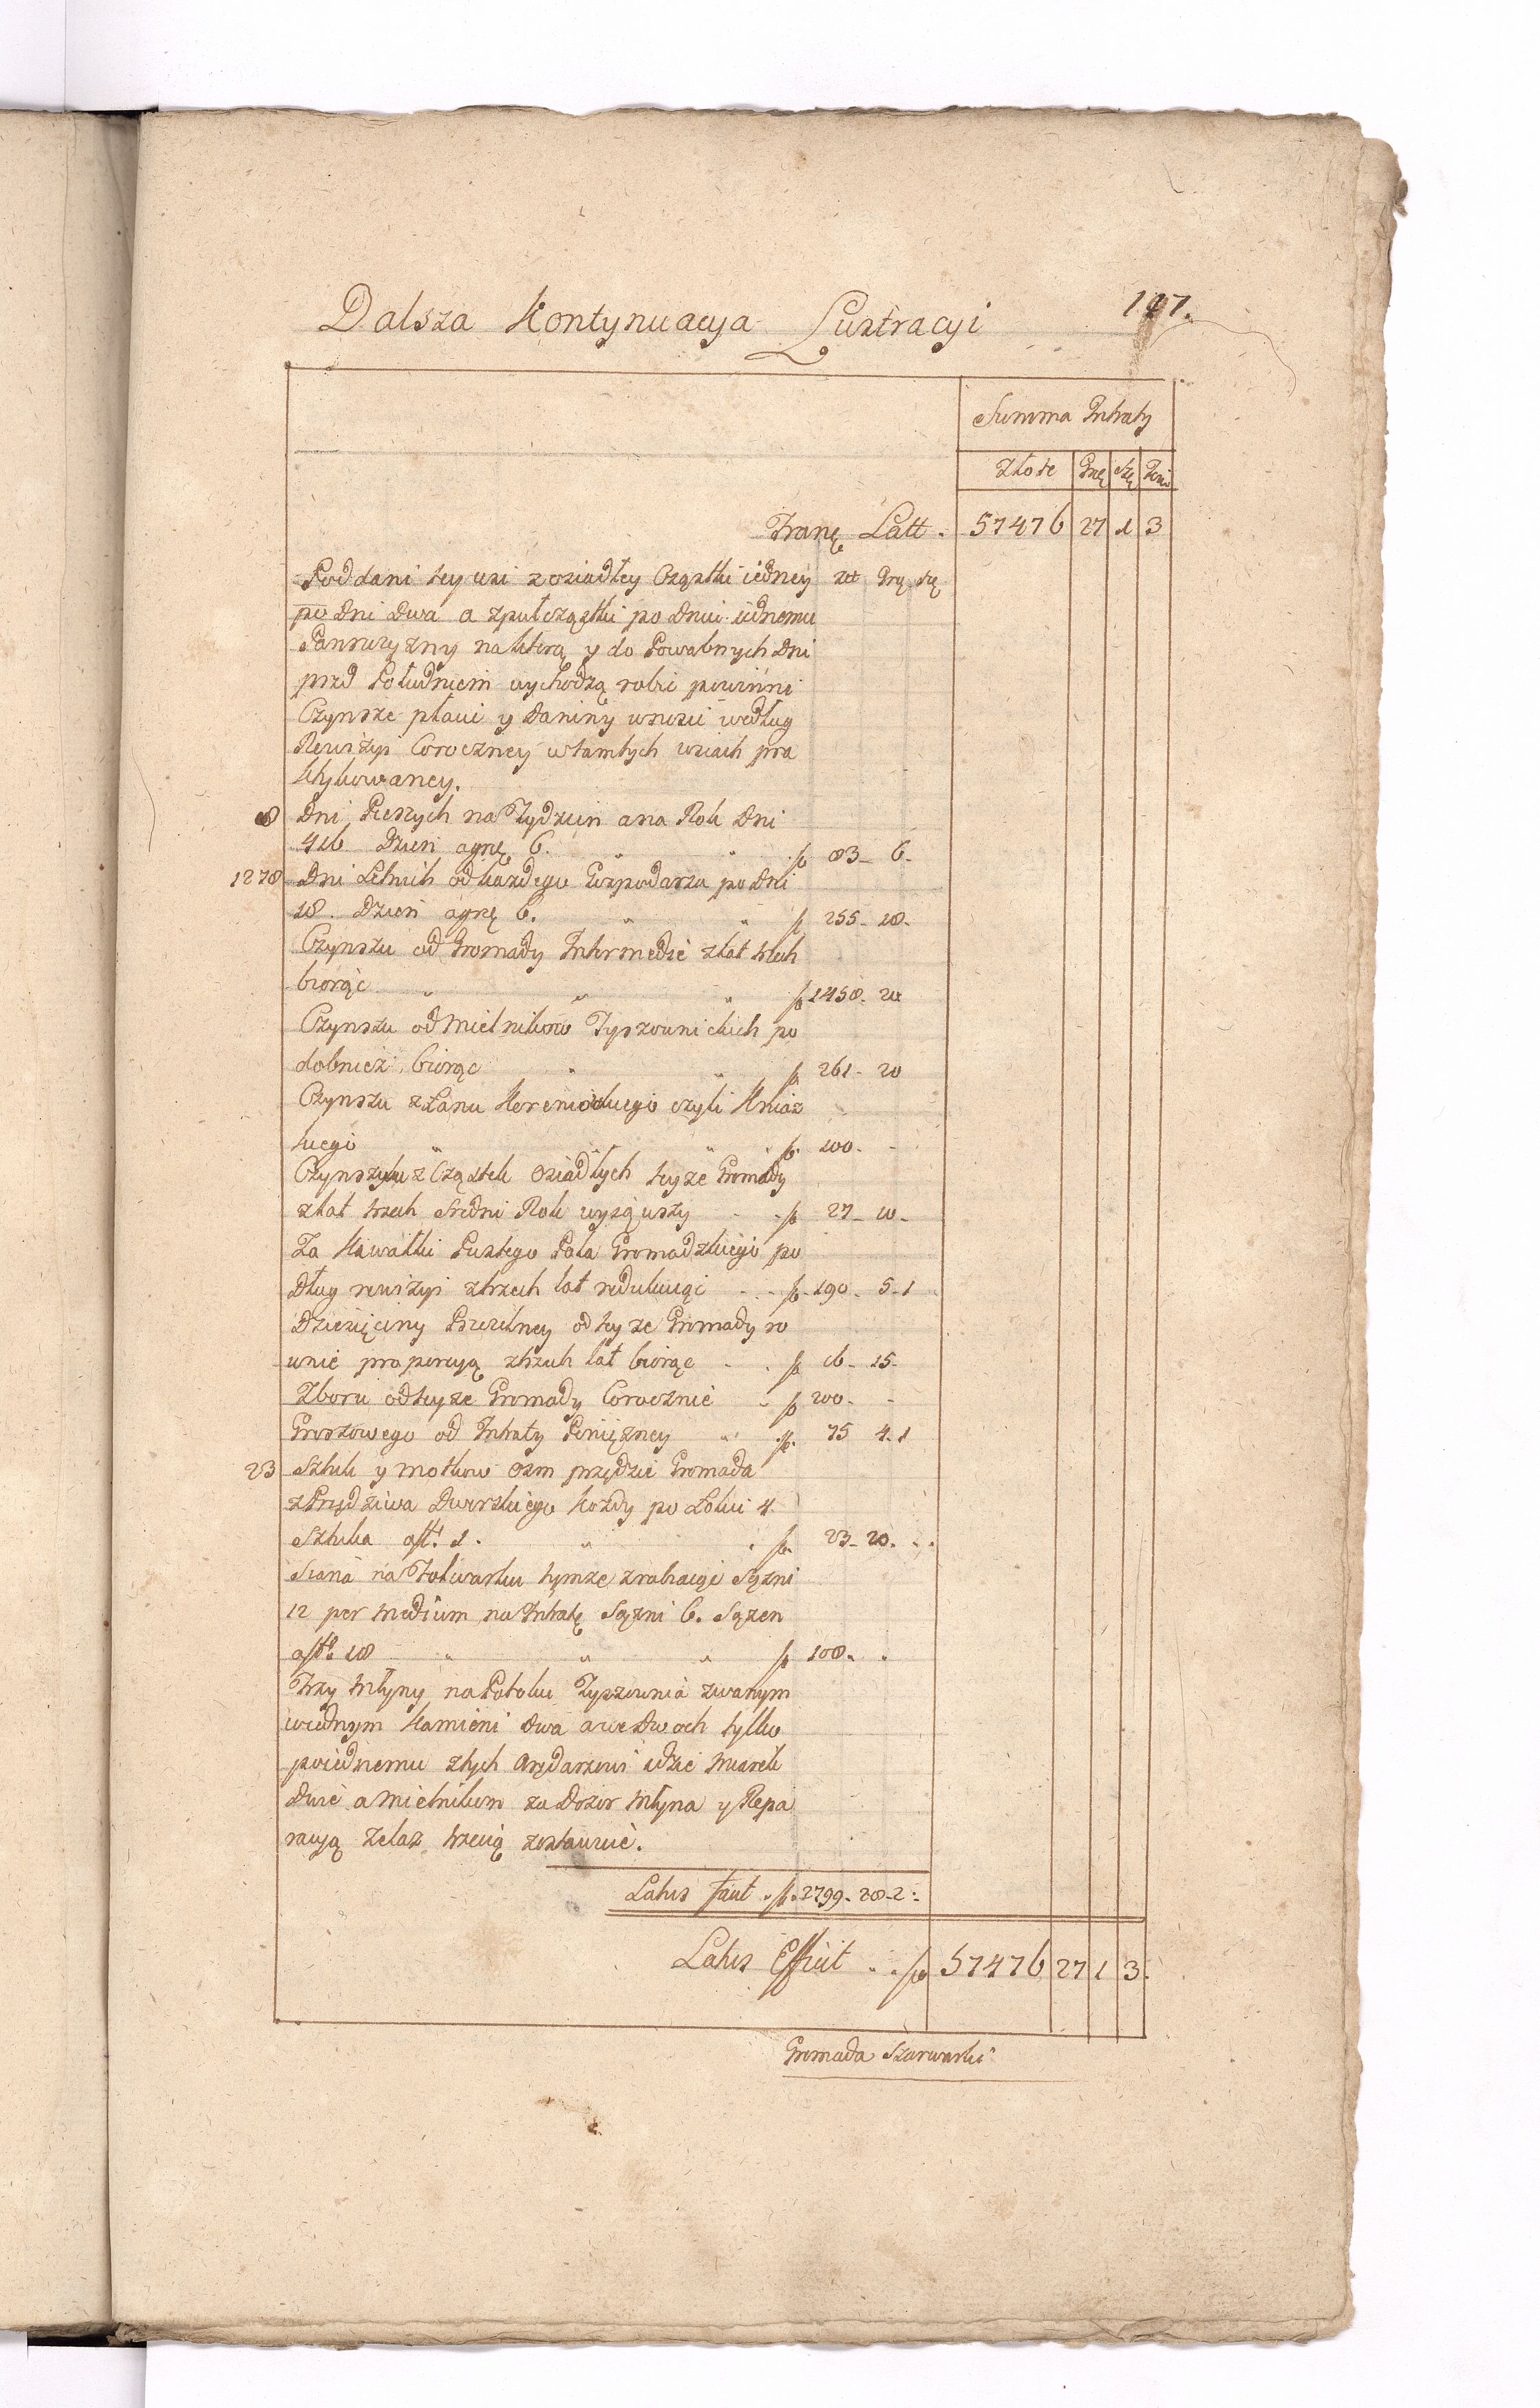 Dalsza Kontynuacya Lustracyi
Summa Intraty
Złote
Tranę Latt. 57476 27 1 3
Poddani tey wsi z osiadłey Cząstki iedney zł Grę Szę
po Dni Dwa a z puł cząstki po Dniu iednemu
Panszczyzny na którą y do Powabnych Dni
przed Południem wychodzą robić powinni
Czynsze płacić y Daniny wnosić według
Rewizyi Coroczney w tamtych wsiach pra
ktykowaney.
8 Dni Pieszych na Tydzień a na Rok Dni
416 Dzień a grę 6. " " f 83 – 6 –
1278 Dni Letnich od każdego Gospodarza po Dni
18. Dzień a grę 6. " " f 255 – 18 –
Czynszu od Gromady Intermedie z lat trzech
biorąc " " " f 1458 – 20
Czynszu od Mielników Tyszownickich po
dobnież biorąc " " f 261 – 20
Czynszu z Łanu czyli Kniaz
kiego " " " f 100 – –
z Cząstek Osiadłych teyże Gromady
z lat trzech Sredni Rok wyiąwszy – – f 27 – 10 –
Za Kawałki Pustego Pola Gromadzkiego po
Dług rewizyi z trzech lat redukuiąc – – f 190 – 5 – 1
Dziesięciny Pszczelney od teyże Gromady ro
wnie proporcyą z trzech lat biorąc – – f 16 – 15 –
Zboru od teyże Gromady Corocznie " f 200 – –
Groszowego od Intraty Pieniężney " f. 75 4. 1
23 Sztuk y Motkow Osm przędzie Gromada
z Przędziwa Dworskiego każdy po Łokci 4
Sztuka a fl. 1. " . f. 23 – 20. . .
Siana na Folwarku tymże zrabiaiąc Sążni
12 per medium na Intratę Sążni 6. Sążen
a fl. 18 " " " f 108. .
Trzy Młyny na Potoku Tyszownia zwanym
w iednym Kamieni Dwa a we Dwoch tylko
po iednemu z tych Arędarzowi idzie miarek
Dwie a Mielnikom za Dozor Młyna y Repa
racyą Zelaz trzecią zostawuie.
Latus facit . f. 2799 – 28 – 2 :
Latus Efficit . . f 57476 27 1 3.
Gromada Szarwarki